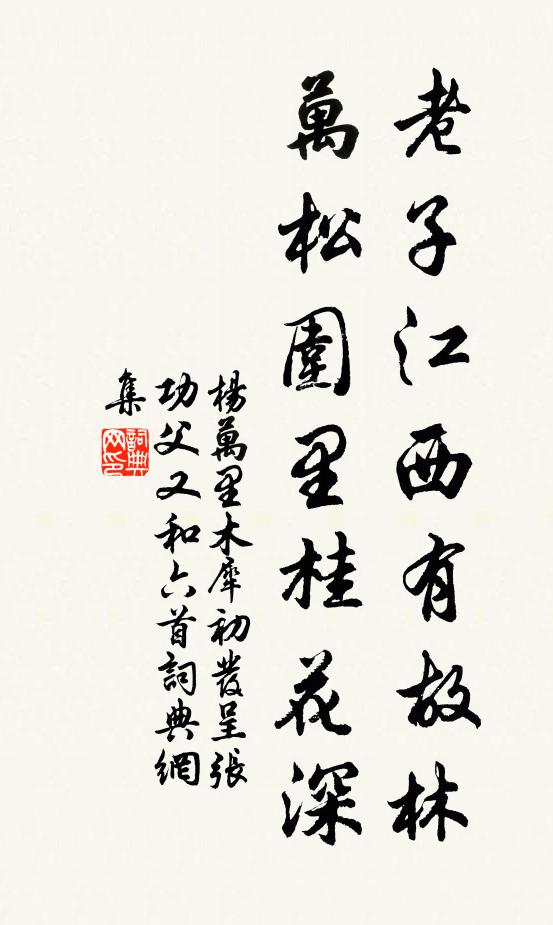 老子江西有故林
萬松圍里桂花深
楊萬里木犀初發呈張
功父又和六首詞典網
集
詞典
网印